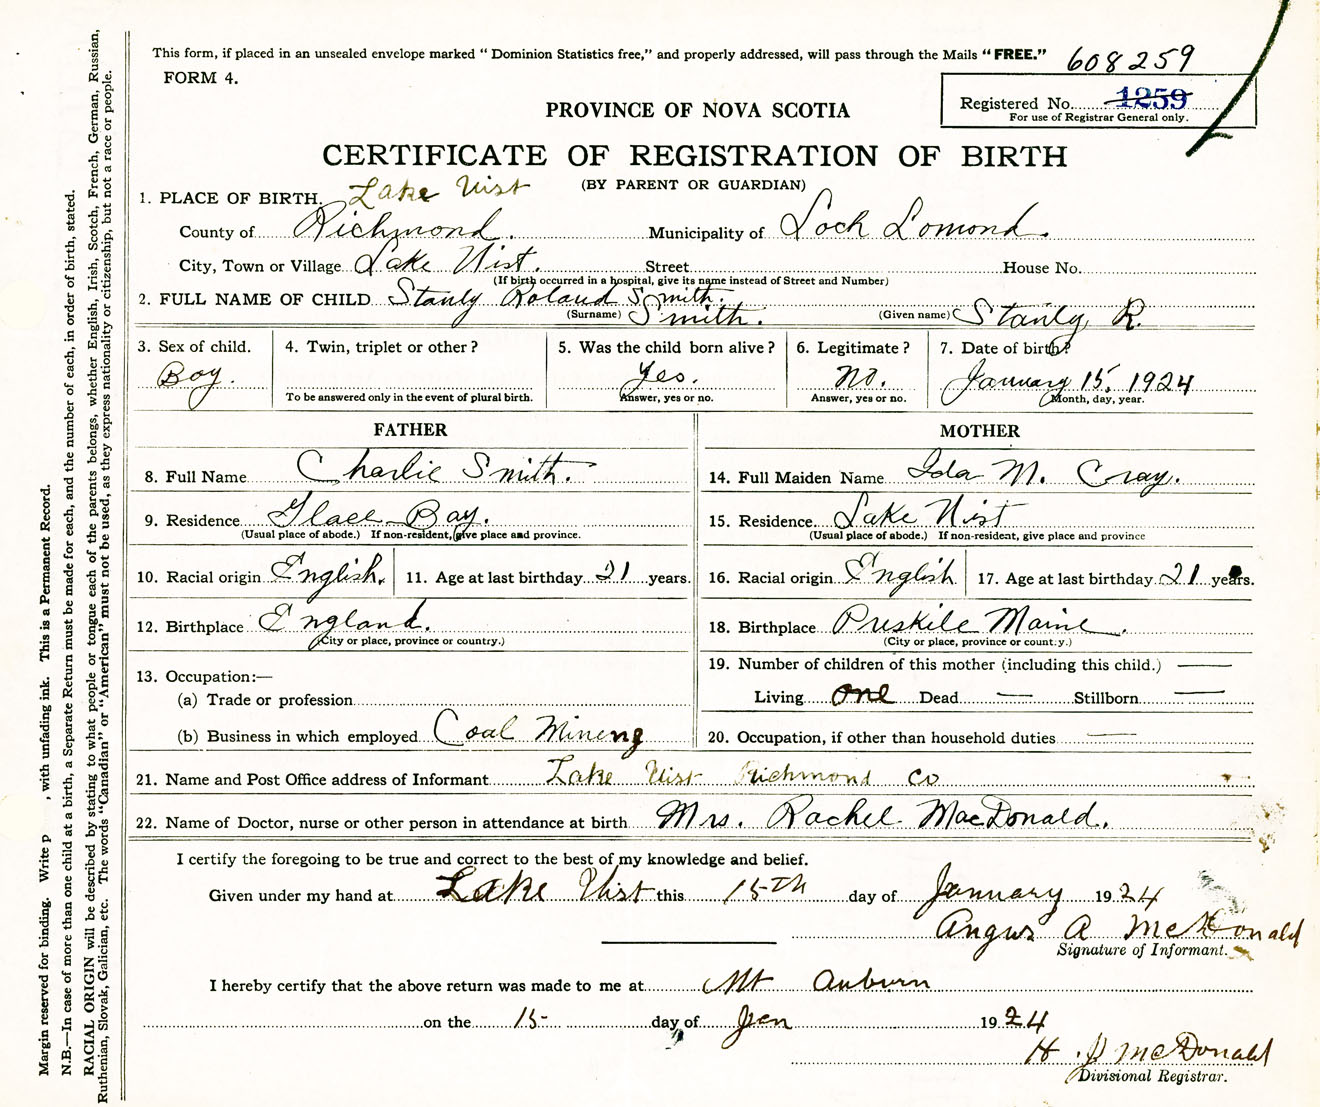 This form, if placed in an unsealed envelope marked "Dominion Statistics free," and properly addressed, will pass through the Mails "FREE."
608259
FORM 4.
Registered No. 1259
For use of Registrar General only.
PROVINCE OF NOVA SCOTIA
CERTIFICATE OF REGISTRATION OF BIRTH
(BY PARENT OR GUARDIAN)
1. PLACE OF BIRTH. Lake Uist
County of Richmond. Municipality of Loch Lomond.
City, Town or Village Lake Uist. Street House No.
(If birth occurred in a hospital, give its name instead of Street and Number)
2. FULL NAME OF CHILD Stanly Roland Smith.
(Surname) Smith. (Given name) Stanly R.
3. Sex of child. 4. Twin, triplet or other? 5. Was the child born alive? 6. Legitimate? 7. Date of birth?
Boy. Yes. No. January 15, 1924
To be answered only in the event of plural birth. Answer, yes or no. Answer, yes or no. Month, day, year.
FATHER MOTHER
8. Full Name Charlie Smith. 14. Full Maiden Name Ida M. Cray.
9. Residence Glace Bay. 15. Residence. Lake Uist
(Usual place of abode.) If non-resident, give place and province. (Usual place of abode.) If non-resident, give place and province
10. Racial origin English. 11. Age at last birthday 21 years. 16. Racial origin English 17. Age at last birthday 21 years.
12. Birthplace England. 18. Birthplace Preskile Maine.
(City or place, province or country.) (City or place, province or count.y.)
19. Number of children of this mother (including this child.) —
13. Occupation:—
(a) Trade or profession Living one Dead — Stillborn —
(b) Business in which employed Coal Mineng 20. Occupation, if other than household duties —
21. Name and Post Office address of Informant Lake Uist Richmond Co
22. Name of Doctor, nurse or other person in attendance at birth Mrs. Rachel MacDonald.
I certify the foregoing to be true and correct to the best of my knowledge and belief.
Given under my hand at Lake Uist this 15th day of January 1924
Angus A McDonald
Signature of Informant.
I hereby certify that the above return was made to me at Mt Auburn
on the 15 day of Jan 1924
H. J. McDonald
Divisional Registrar.
Margin reserved for binding. Write p , with unfading ink. This is a Permanent Record.
N.B.—In case of more than one child at a birth, a Separate Return must be made for each, and the number of each, in order of birth, stated.
RACIAL ORIGIN will be described by stating to what people or tongue each of the parents belongs, whether English, Irish, Scotch, French, German, Russian,
Ruthenian, Slovak, Galician, etc. The words "Canadian" or "American" must not be used, as they express nationality or citizenship, but not a race or people.